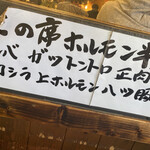 の席ホルモン半
バ ガツ トントロ 正肉
コシラ 上ホルモン 八ツ 豚